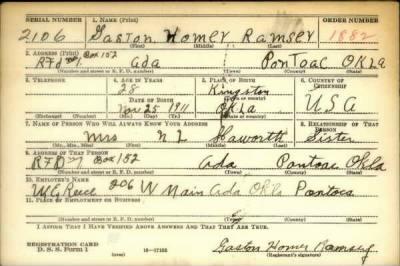 SERIAL NUMBER 1. NAME (Print) ORDER NUMBER
2106 Gaston Homer Ramsey 1882
(First) (Middle) (Last)
2. ADDRESS (Print)
RFD #1 Box 152 Ada Pontoac OKLA
(Number and street or R. F. D. number) (Town) (County) (State)
3. TELEPHONE 4. AGE IN YEARS 5. PLACE OF BIRTH 6. COUNTRY OF CITIZENSHIP
28 Kingston
DATE OF BIRTH
Nov 25 1911 OKLA USA
(Mo.) (Day) (Yr.) (State or country)
7. NAME OF PERSON WHO WILL ALWAYS KNOW YOUR ADDRESS 8. RELATIONSHIP OF THAT PERSON
Mrs N L Haworth Sister
(Mr., Mrs., Miss) (First) (Middle) (Last)
9. ADDRESS OF THAT PERSON
RFD Box 152 Ada Pontoac Okla
(Number and street or R. F. D. number) (Town) (County) (State)
10. EMPLOYER'S NAME
W G Reece 206 W Main Ada Okla Pontoca
11. PLACE OF EMPLOYMENT OR BUSINESS
(Number and street or R. F. D. number) (Town) (County) (State)
I AFFIRM THAT I HAVE VERIFIED ABOVE ANSWERS AND THAT THEY ARE TRUE.
REGISTRATION CARD
D. S. S. Form 1 Gaston Homer Ramsey
(Registrant's signature)